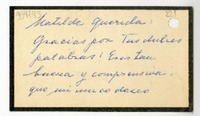 9/4/43
Matilde querida:
Gracias por tus dulces
palabras! Eres tan
buena y comprensiva
que mi unico deseo